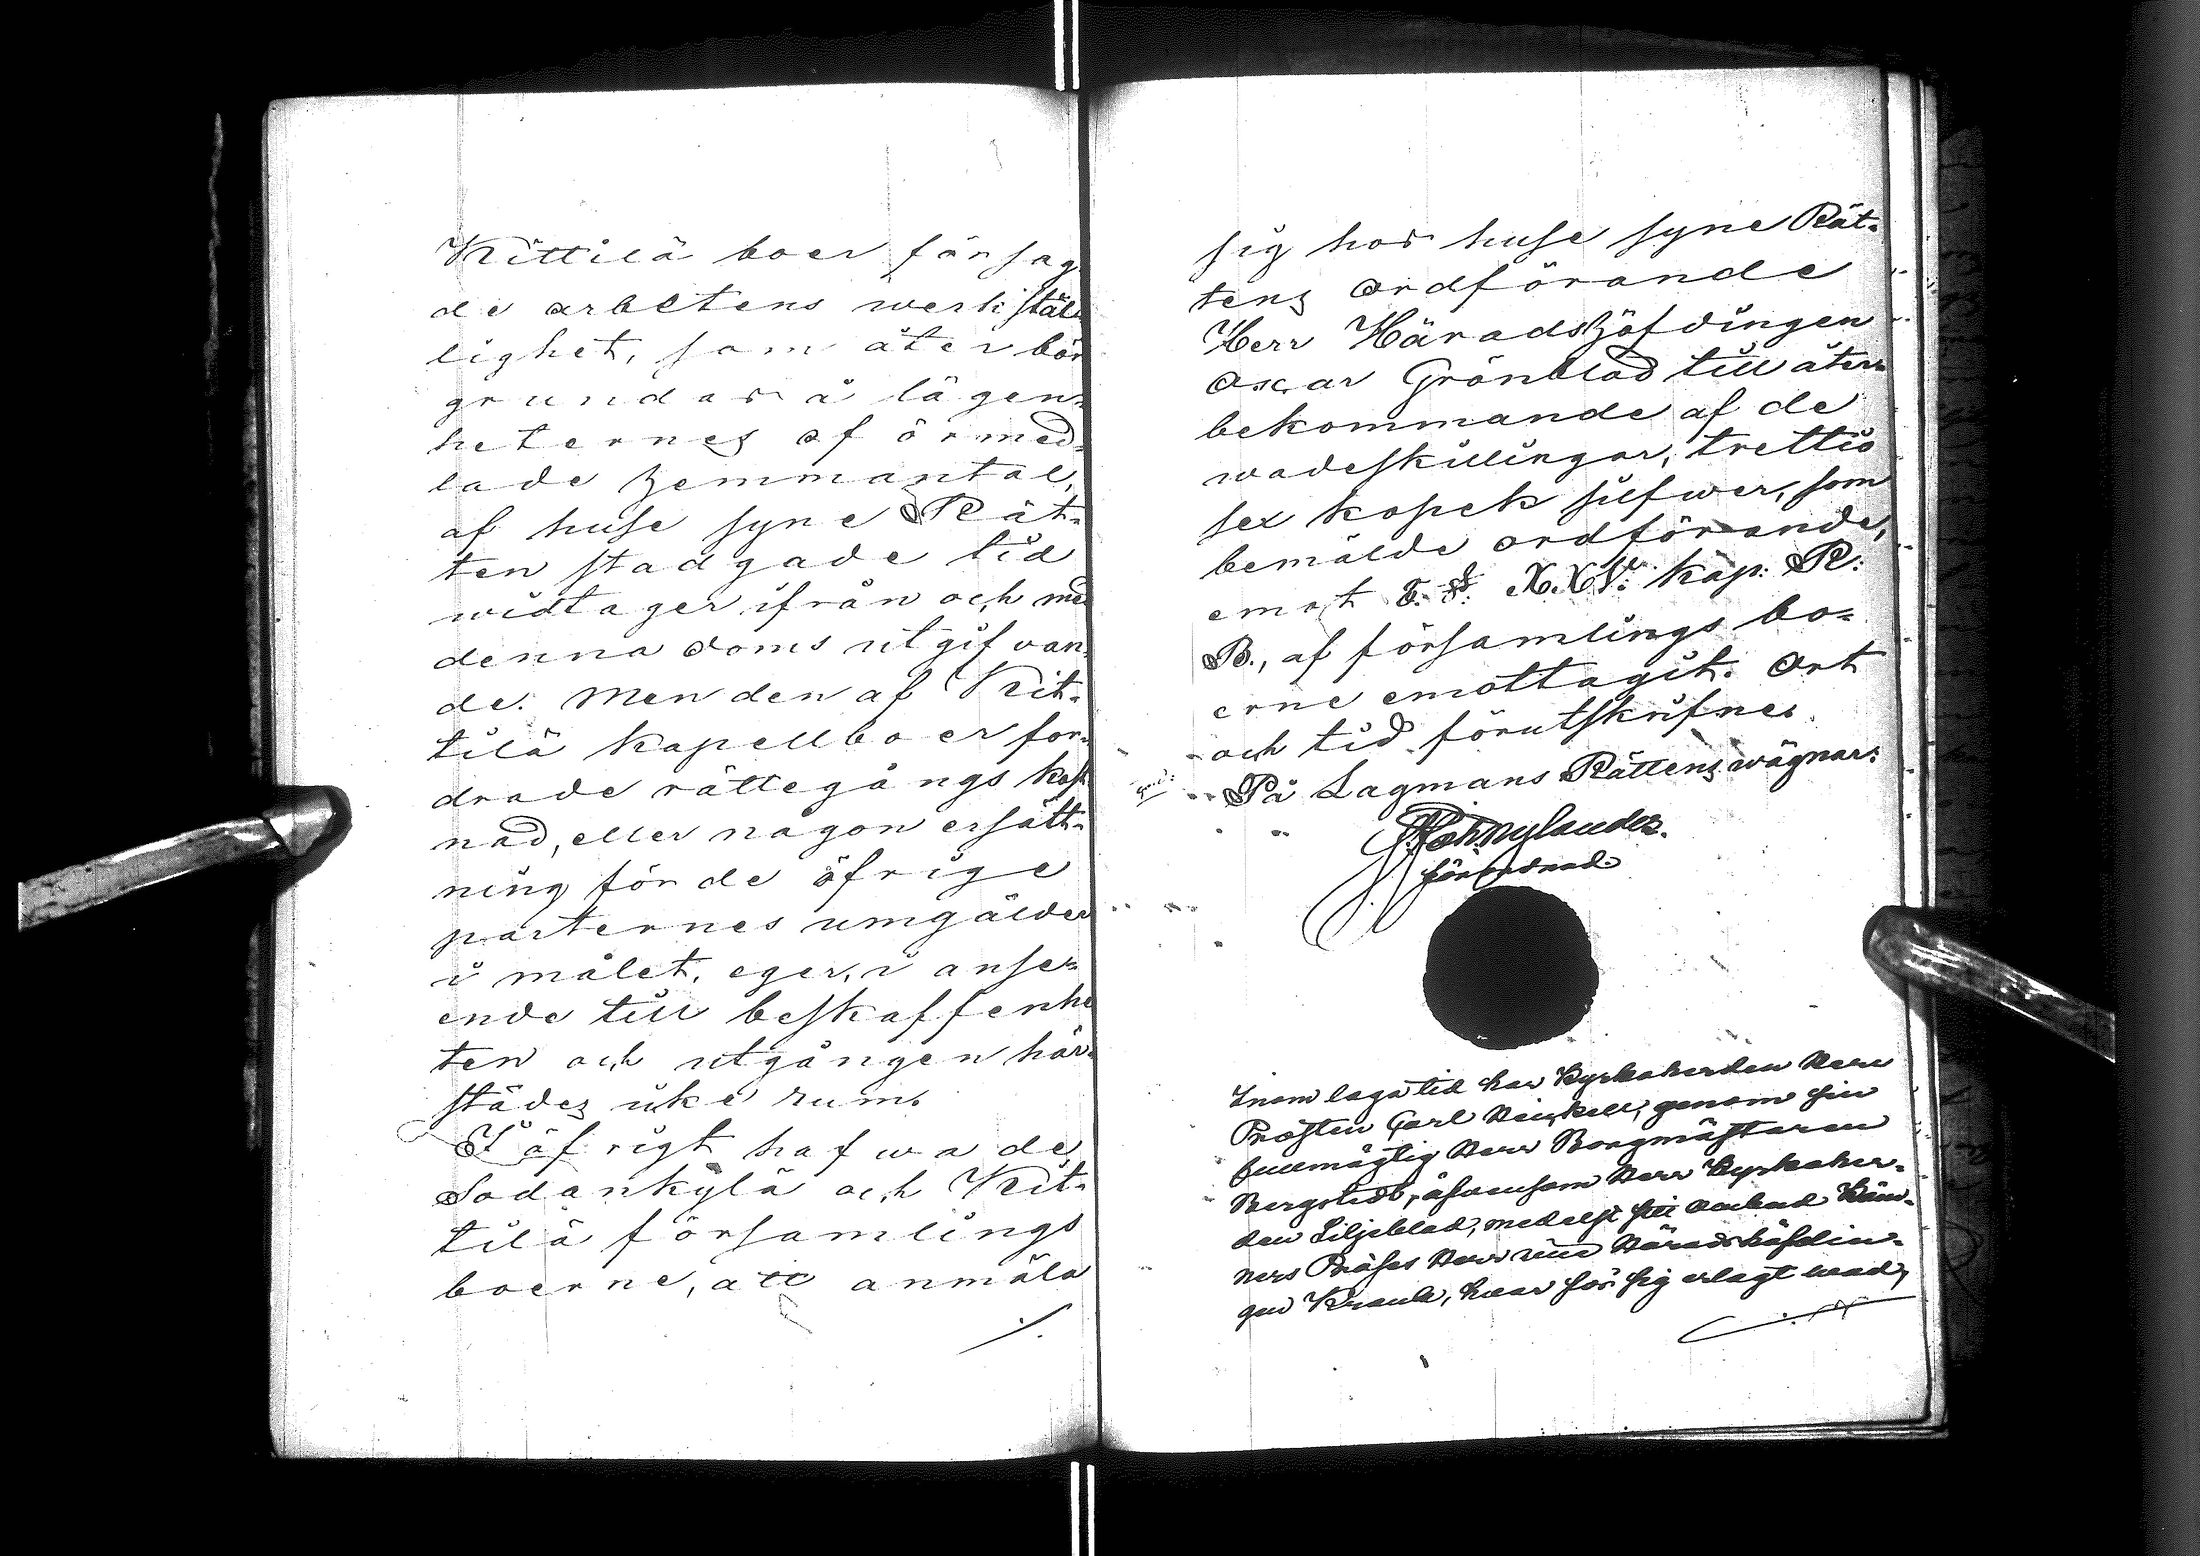 Kittilä boer försag
de arbetens werkstäl
lighet, som åter bör
grundas å lägen-
heternes oförmed-
lade hemmantal,
af huse syne Rät-
ten stadgade tid
widtager ifrån och med
denna doms utgifvan
de. Men den af Kit-
tilä kapellboer for-
drade rättegångs kost
nad, eller någon ersätt-
ning för de öfrige
parternes umgälder
i målet, eger, i anse-
ende till beskaffenhe
ten och utgången här-
städes icke rum.
I öfrigt hafwa de
Sodankylä och Kit-
tilä församlings
boerne, att anmäla
./.
sig hos huse syne Rät-
tens ordförande
Herr Häradshöfdingen
Oscar Grönblad till åter-
bekommande af de
wadeskillingar, trettio
sex kopek silfwer, som
bemälde ordförande,
emot 5. §. XXV. kap. R:
B., af församlings bo-
erne emottagit. Ort
och tid förutskrifne.
På Lagmans Rättens wägnar:
Joh. Nylander.
förordnad.
Inom laga tid har Kyrkoherden Herr
Prosten Carl Heickell, genom sin
fullmägtig Herr Borgmästaren
Bergstedt, äfvensom Herr Kyrkoher-
den Liljeblad, medelst sitt ombud Käm-
ners Præses Herr vice Häradshöfdin-
gen Krank, hvar för sig erlagt wad,
./.